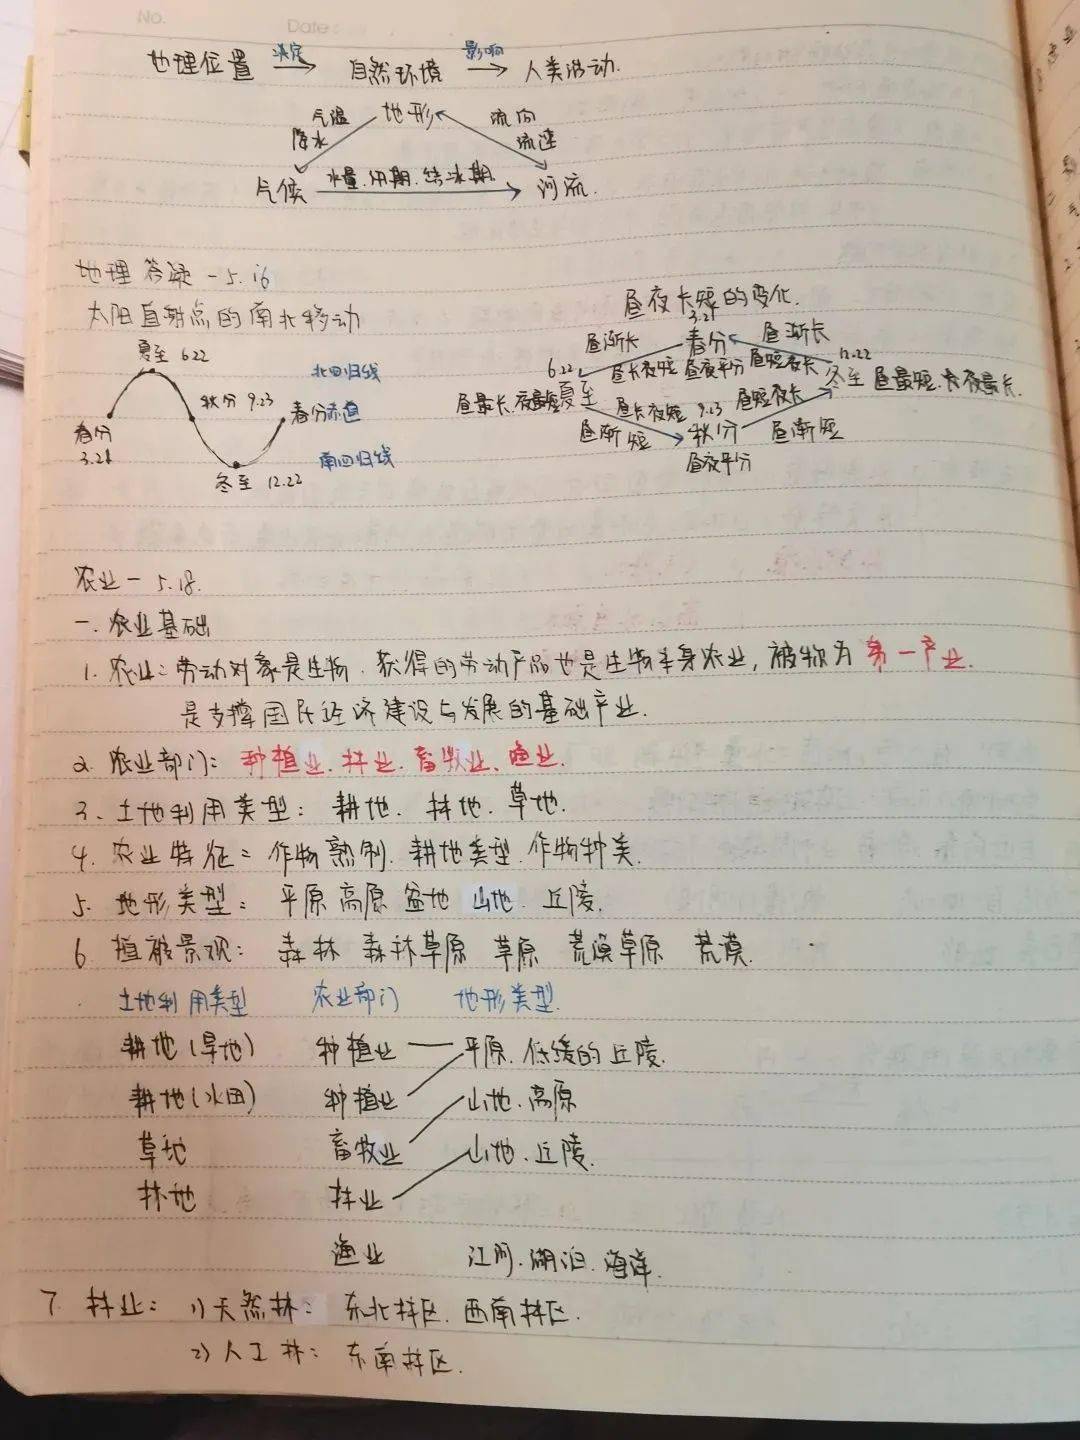 No.
Date:
地理位置 决定 自然环境 影响 人类活动.
气温 地形 流向
降水 流速
气候 水量.汛期.结冰期 河流.
地理答疑-5.16
昼夜长短的变化.
太阳直射点的南北移动
3.21
昼渐长 春分 昼渐长
夏至 6.22
北回归线
6.22 昼长夜短 昼夜平分 昼短夜长 12.22
秋分 9.23 春分赤道
昼最长.夜最短 夏至 冬至 昼最短.夜最长.
昼长夜短 9.23 昼短夜长
春分
3.21
昼渐短 秋分 昼渐短
南回归线
昼夜平分
冬至 12.22
农业-5.18.
一.农业基础
1.农业:劳动对象是生物.获得的劳动产品也是生物本身农业,被称为第一产业.
是支撑国民经济建设与发展的基础产业.
2.农业部门:种植业.林业.畜牧业.渔业.
3.土地利用类型:耕地.林地.草地.
4.农业特征:作物熟制.耕地类型.作物种类.
5.地形类型:平原 高原 盆地 山地.丘陵.
6.植被景观:森林 森林草原 草原 荒漠草原 荒漠.
土地利用类型 农业部门 地形类型.
耕地(旱地) 种植业 平原.低缓的丘陵.
耕地(水田) 种植业 山地.高原
草地 畜牧业 山地.丘陵.
林地 林业
渔业 江河.湖泊.海洋.
7.林业: 1)天然林:东北林区.西南林区.
2)人工林:东南林区.